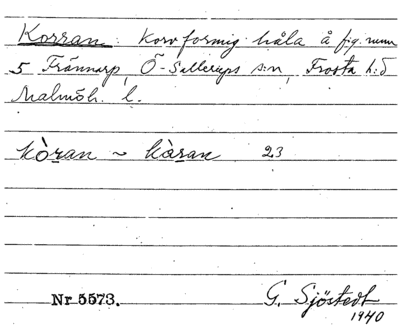 Korran: Korvformig håla å fig. num
5 Frännarp, Ö-Sallerups s:n, Frosta h:d
Malmöh. l.
kòran ~ kàran 23
Nr 5573. G. Sjöstedt
1940